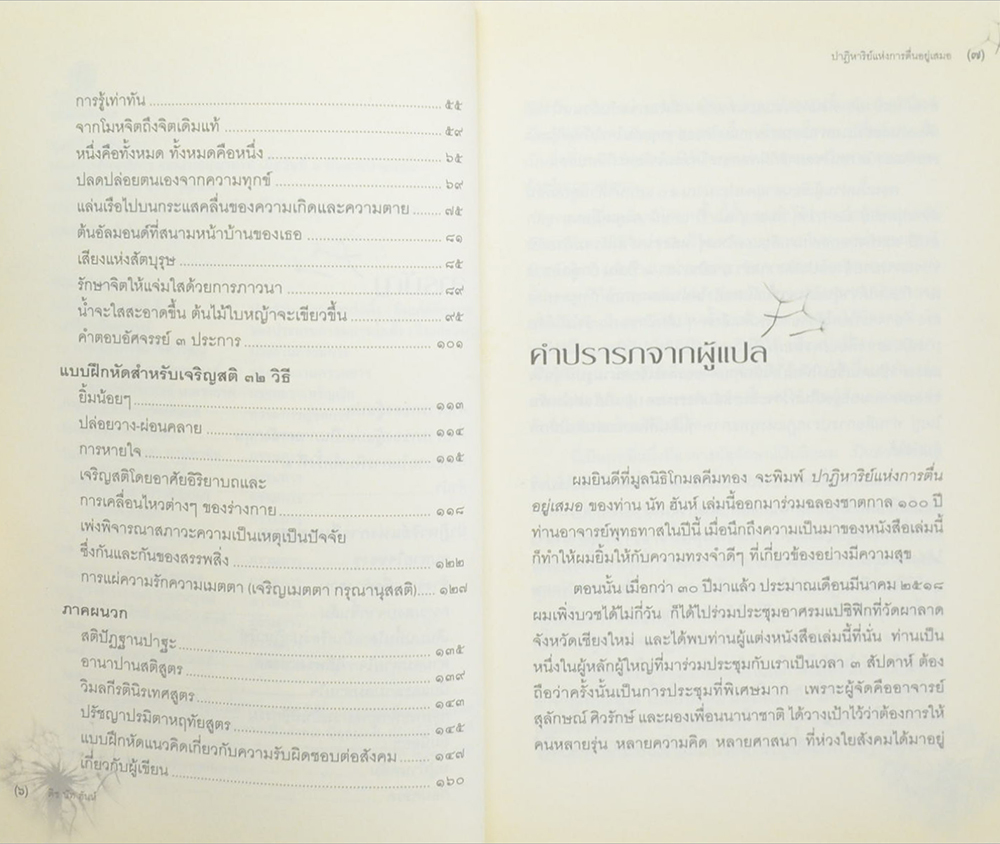 การรู้เท่าทัน ๕๕
จากโมหจิตถึงจิตเดิมแท้ ๕๙
หนึ่งคือทั้งหมด ทั้งหมดคือหนึ่ง ๖๕
ปลดปล่อยตนเองจากความทุกข์ ๖๙
แล่นเรือไปบนกระแสคลื่นของความเกิดและความตาย ๗๕
ต้นอัลมอนด์ที่สนามหน้าบ้านของเธอ ๘๑
เสียงแห่งสัตบุรุษ ๘๕
รักษาจิตให้แจ่มใสด้วยการภาวนา ๘๙
น้ำจะใสสะอาดขึ้น ต้นไม้ใบหญ้าจะเขียวขึ้น ๙๕
คำตอบอัศจรรย์ ๓ ประการ ๑๐๑
แบบฝึกหัดสำหรับเจริญสติ ๓๒ วิธี
ยิ้มน้อยๆ ๑๑๓
ปล่อยวาง-ผ่อนคลาย ๑๑๔
การหายใจ ๑๑๕
เจริญสติโดยอาศัยอิริยาบถและ
การเคลื่อนไหวต่างๆ ของร่างกาย ๑๑๘
เพ่งพิจารณาสภาวะความเป็นเหตุเป็นปัจจัย
ซึ่งกันและกันของสรรพสิ่ง ๑๒๒
การแผ่ความรักความเมตตา (เจริญเมตตา กรุณานุสสติ) ๑๒๗
ภาคผนวก
สติปัฏฐานปาฐะ ๑๓๕
อานาปานสติสูตร ๑๓๙
วิมลกีรตินิรเทศสูตร ๑๔๓
ปรัชญาปรมิตาหฤทัยสูตร ๑๔๕
แบบฝึกหัดแนวคิดเกี่ยวกับความรับผิดชอบต่อสังคม ๑๔๗
เกี่ยวกับผู้เขียน ๑๖๐
(๖) ติช นัท ฮันห์
ปาฏิหาริย์แห่งการตื่นอยู่เสมอ (๗)
คำปรารภจากผู้แปล
ผมยินดีที่มูลนิธิโกมลคีมทอง จะพิมพ์ ปาฏิหาริย์แห่งการตื่น
อยู่เสมอ ของท่าน นัท ฮันห์ เล่มนี้ออกมาร่วมฉลองชาตกาล ๑๐๐ ปี
ท่านอาจารย์พุทธทาสในปีนี้ เมื่อนึกถึงความเป็นมาของหนังสือเล่มนี้
ก็ทำให้ผมยิ้มให้กับความทรงจำดีๆ ที่เกี่ยวข้องอย่างมีความสุข
ตอนนั้น เมื่อกว่า ๓๐ ปีมาแล้ว ประมาณเดือนมีนาคม ๒๕๑๘
ผมเพิ่งบวชได้ไม่กี่วัน ก็ได้ไปร่วมประชุมอาศรมแปซิฟิกที่วัดผาลาด
จังหวัดเชียงใหม่ และได้พบท่านผู้แต่งหนังสือเล่มนี้ที่นั่น ท่านเป็น
หนึ่งในผู้หลักผู้ใหญ่ที่มาร่วมประชุมกับเราเป็นเวลา ๓ สัปดาห์ ต้อง
ถือว่าครั้งนั้นเป็นการประชุมที่พิเศษมาก เพราะผู้จัดคืออาจารย์
สุลักษณ์ ศิวรักษ์ และผองเพื่อนนานาชาติ ได้วางเป้าไว้ว่าต้องการให้
คนหลายรุ่น หลายความคิด หลายศาสนา ที่ห่วงใยสังคมได้มาอยู่